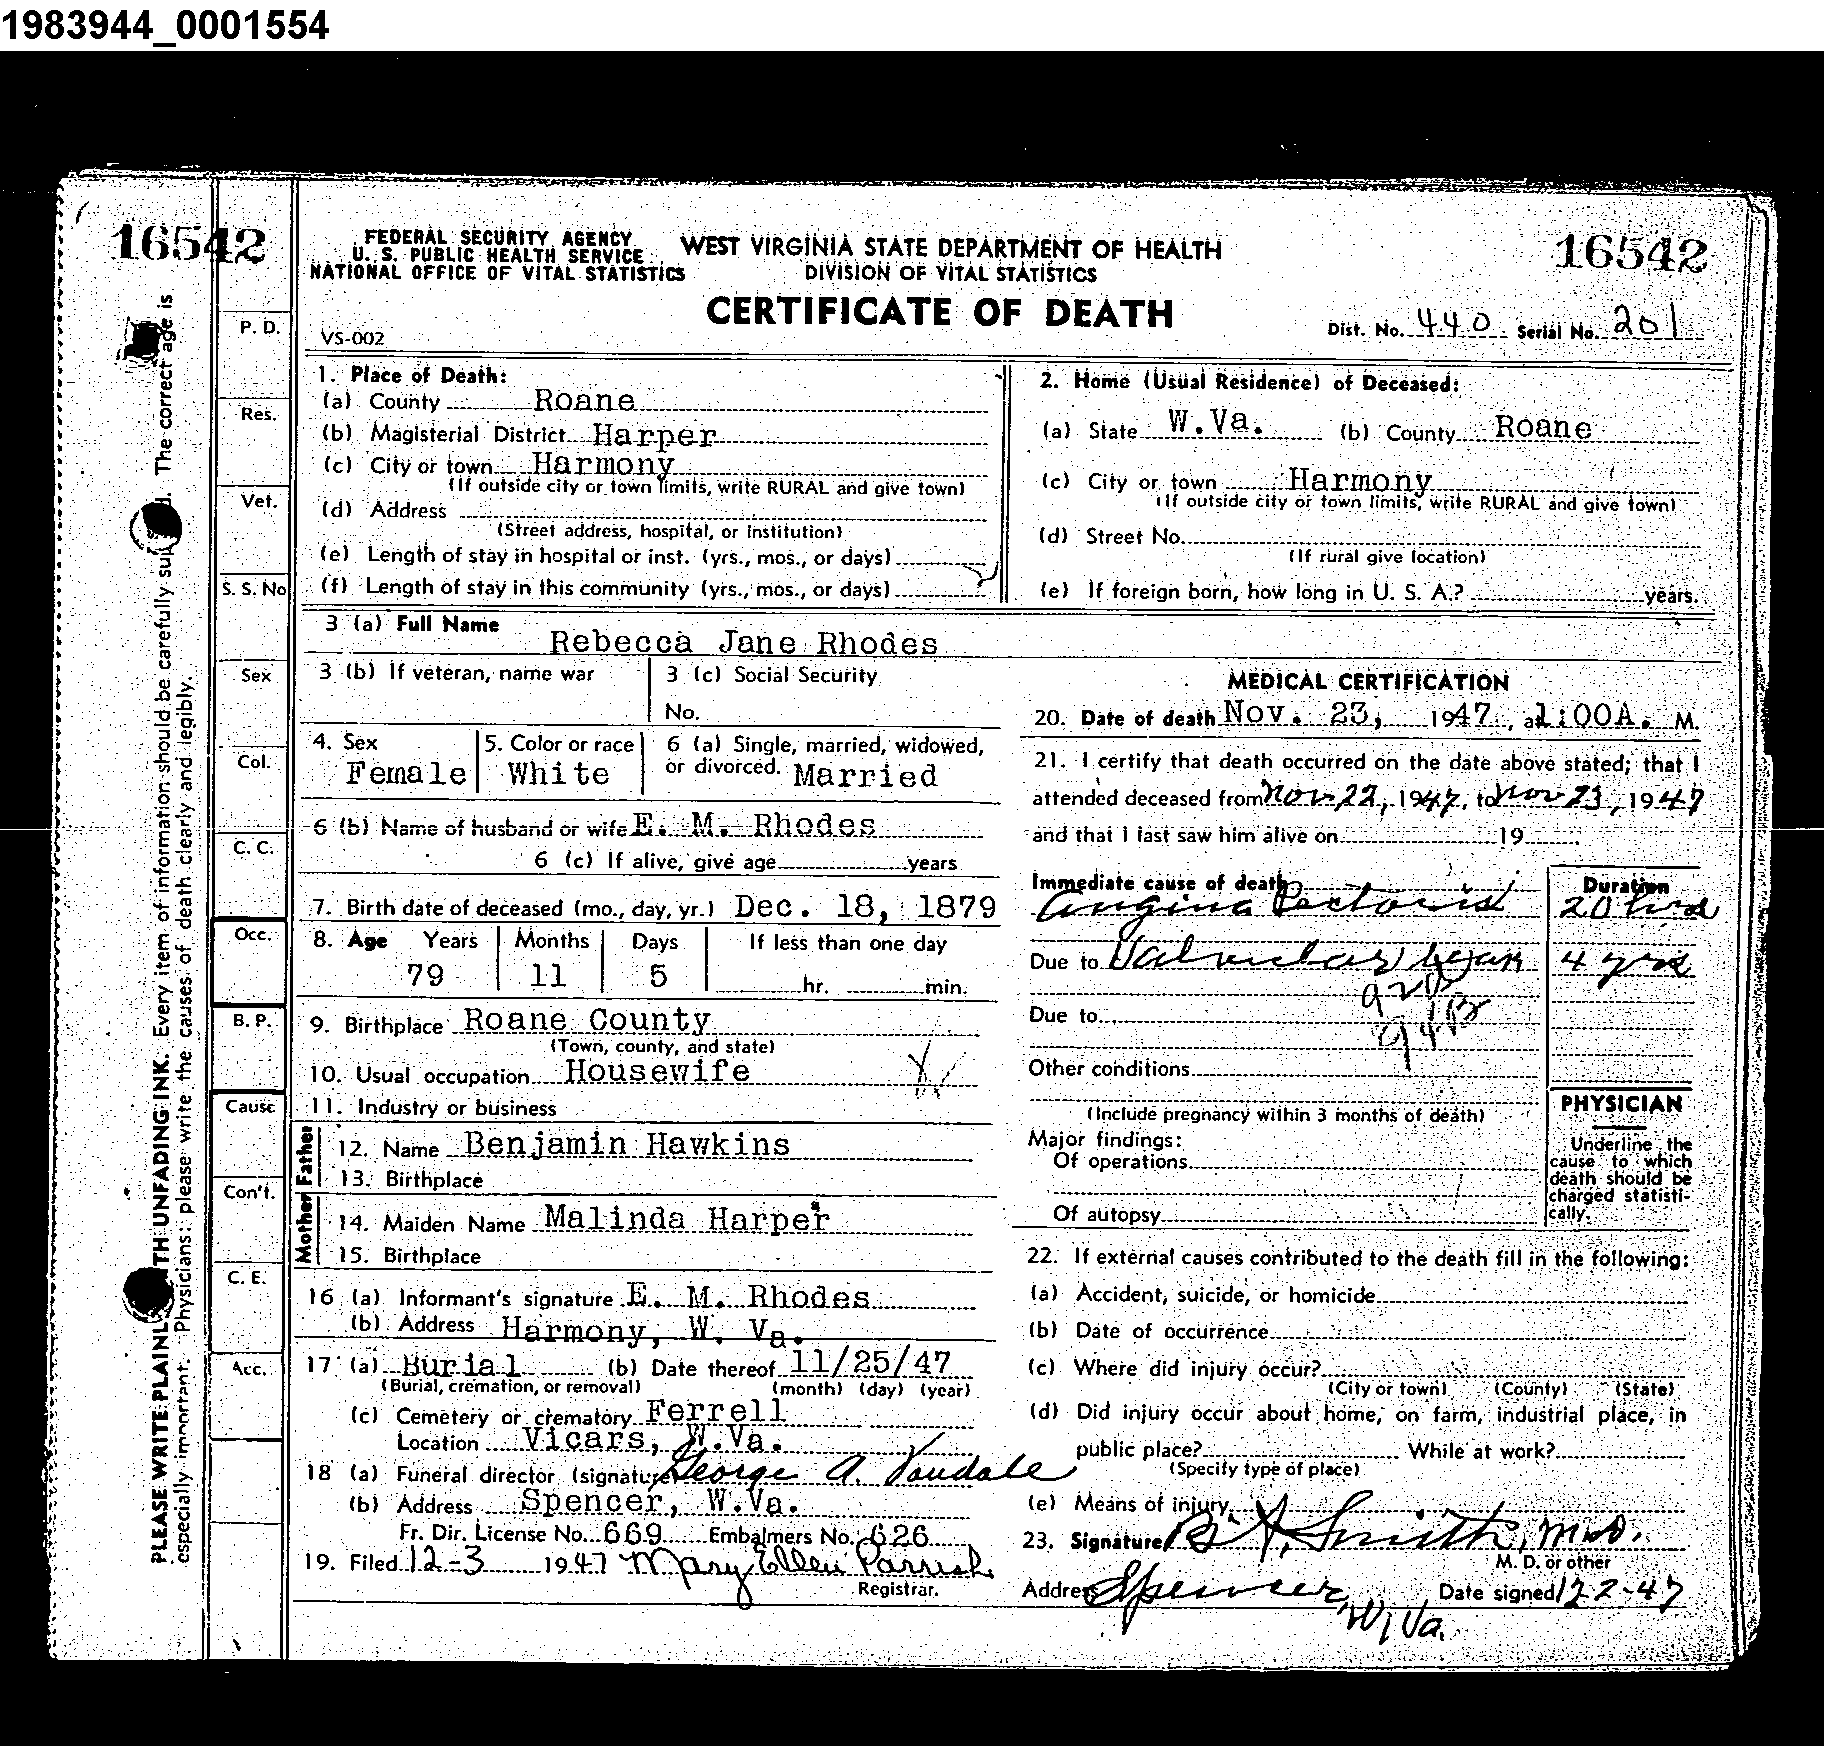 1983944_0001554
16542
16542
FEDERAL SECURITY AGENCY
U. S. PUBLIC HEALTH SERVICE
NATIONAL OFFICE OF VITAL STATISTICS
WEST VIRGINIA STATE DEPARTMENT OF HEALTH
DIVISION OF VITAL STATISTICS
CERTIFICATE OF DEATH
VS-002
Dist. No. 440 Serial No. 201
PLEASE WRITE PLAINL TH UNFADING INK. Every item of information should be carefully su d. The correct age is
especially important. Physicians: please write the causes of death clearly and legibly.
P. D.
Res.
Vet.
S. S. No
Sex
Col.
C. C.
Occ.
B. P.
Cause
Con't.
C. E.
Acc.
1. Place of Death:
(a) County Roane
(b) Magisterial District Harper
(c) City or town Harmony
(If outside city or town limits, write RURAL and give town)
(d) Address
(Street address, hospital, or institution)
(e) Length of stay in hospital or inst. (yrs., mos., or days)
(f) Length of stay in this community (yrs., mos., or days)
2. Home (Usual Residence) of Deceased:
(a) State W.Va. (b) County Roane
(c) City or town Harmony
(If outside city or town limits, write RURAL and give town)
(d) Street No.
(If rural give location)
(e) If foreign born, how long in U. S. A.? years.
3 (a) Full Name Rebecca Jane Rhodes
3 (b) If veteran, name war
3 (c) Social Security
No.
4. Sex
Female
5. Color or race
White
6 (a) Single, married, widowed,
or divorced. Married
6 (b) Name of husband or wife E. M. Rhodes
6 (c) If alive, give age years
7. Birth date of deceased (mo., day, yr.) Dec. 18, 1879
8. Age Years Months Days If less than one day
79 11 5 hr. min.
9. Birthplace Roane County
(Town, county, and state)
10. Usual occupation Housewife
11. Industry or business
Father
12. Name Benjamin Hawkins
13. Birthplace
Mother
14. Maiden Name Malinda Harper
15. Birthplace
16 (a) Informant's signature E. M. Rhodes
(b) Address Harmony, W. Va.
17 (a) Burial (b) Date thereof 11/25/47
(Burial, cremation, or removal) (month) (day) (year)
(c) Cemetery or crematory Ferrell
Location Vicars, W.Va.
18 (a) Funeral director (signature George A. Vandale
(b) Address Spencer, W.Va.
Fr. Dir. License No. 669 Embalmers No. 626
19. Filed 12-3 1947 Mary Ellen Parrish
Registrar.
MEDICAL CERTIFICATION
20. Date of death Nov. 23, 1947, at 1:00A. M.
21. I certify that death occurred on the date above stated; that I
attended deceased from Nov 22, 1947, to Nov 23, 1947
and that I last saw him alive on 19
Immediate cause of death
Angina Pectoris
Duration
20 hrs
Due to Valvular 4 yrs
92B
Due to
94B
Other conditions
(Include pregnancy within 3 months of death)
Major findings:
Of operations
Of autopsy
PHYSICIAN
Underline the
cause to which
death should be
charged statisti-
cally.
22. If external causes contributed to the death fill in the following:
(a) Accident, suicide, or homicide
(b) Date of occurrence
(c) Where did injury occur?
(City or town) (County) (State)
(d) Did injury occur about home, on farm, industrial place, in
public place? While at work?
(Specify type of place)
(e) Means of injury
23. Signature Smith, M.D.
M. D. or other
Address Spencer, W, Va. Date signed 12 2-47